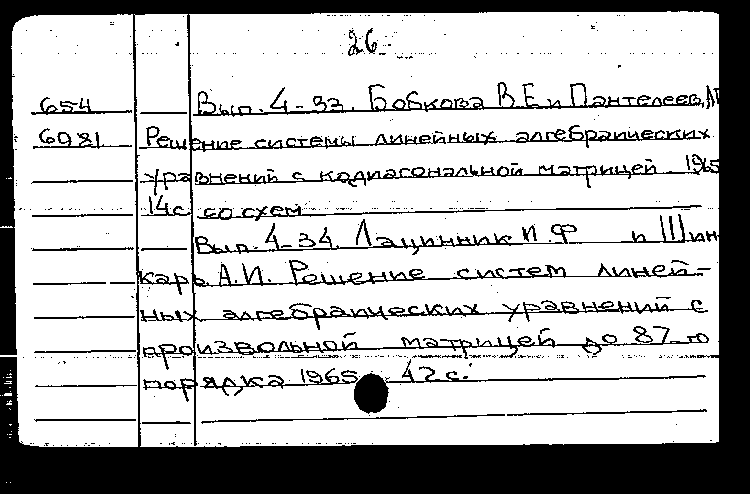 26
654 Вып. 4-33. Бобкова В.Е и Пантелеев,
6081 Решение системы линейных алгебраических
уравнений с кодиагональной матрицей 1965
14с со схем.
Вып. 4-34. Лащинник И.Ф и Шин
карь А.И. Решение систем линей-
ных алгебраических уравнений с
произвольной матрицей до 87-го
порядка 1965 42с.